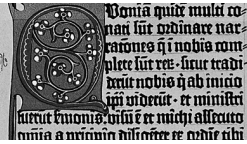 Quoniã quidẽ multi co-
nati sũt ordinare nar-
rationes q̃ i nobis com-
plete sũt reꝝ · sicut tradi-
derũt nobis q̃ ab inicio
ip̃i viderũt · et ministri
fuerũt sermonis · visũ ẽ et michi assecuto
omnia a principio diligẽter ex ordĩe tibi